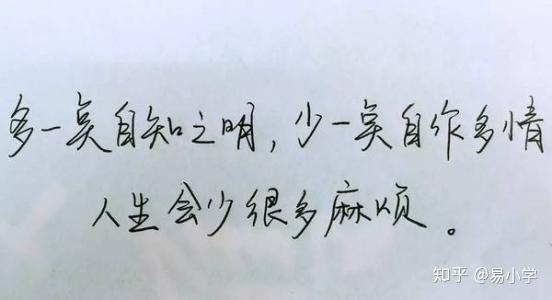 多一点自知之明，少一点自作多情
人生会少很多麻烦。
知乎 @易小学